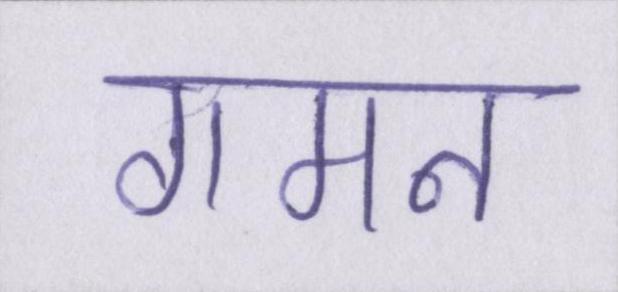 गमन